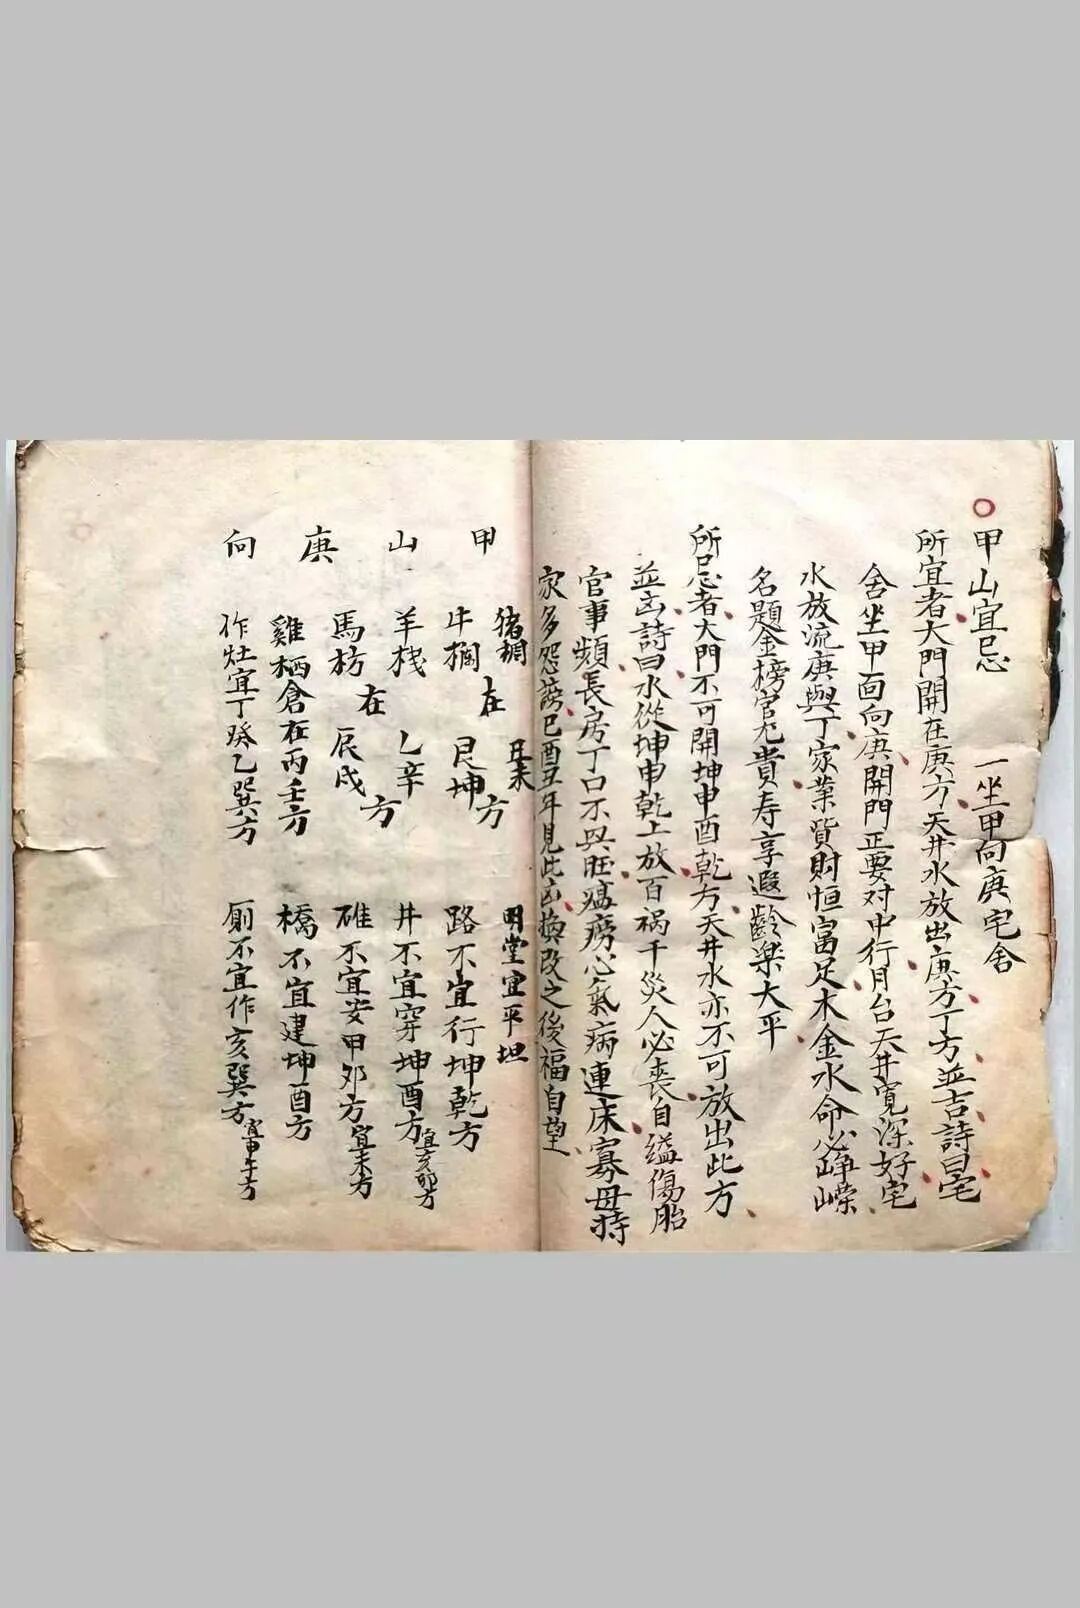 甲山宜忌　一坐甲向庚宅舍
所宜者大門開在庚方天井水放出庚方丁方並吉詩曰宅
舍坐甲面向庚開門正要对中行月台天井寬深好宅
水放流庚與丁家業貲財恒富足木金水命必崢嶸
名題金榜官尤貴寿享遐齡楽大平
所忌者大門不可開坤申酉乾方天井水亦不可放出此方
並凶詩曰水從坤申乾上放百祸千災人必喪自缢傷胎
官事頻長房丁口不興旺瘟癆心氣病連床寡母持
家多怨謗巳酉丑年見此凶換改之後福自望
甲山庚向
猪椆　丑未
牛欄在艮坤方
羊栈　乙辛
馬枋在辰戌方
雞栖倉在丙壬方
作灶宜丁癸乙巽方
明堂宜平坦
路不宜行坤乾方
井不宜穿坤酉方宜亥卯方
碓不宜安甲卯方宜未方
橋不宜建坤酉方
厠不宜作亥巽方